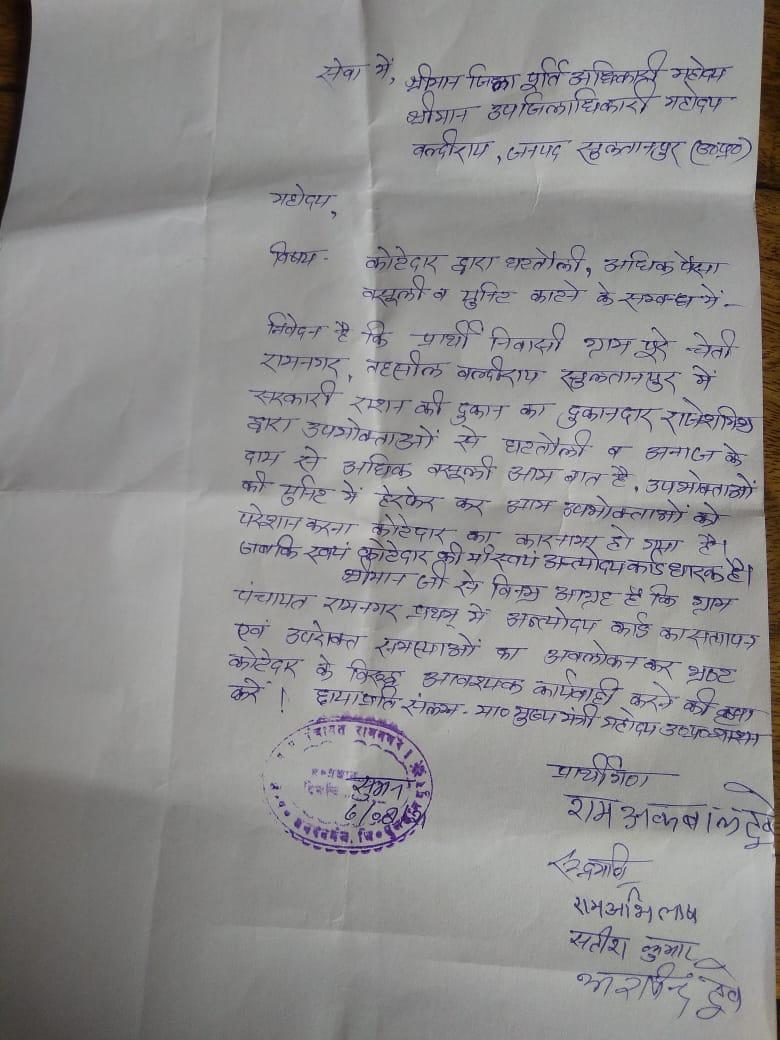 सेवा में, श्रीमान जिला पूर्ति अधिकारी महोदय
श्रीमान उपजिलाधिकारी महोदय
वल्दीराय, जनपद सुलतानपुर (उ०प्र०)
महोदय,
विषय- कोटेदार द्वारा घटतौली, अधिक पैसा
वसूली व युनिट काटने के सम्बन्ध में -
निवेदन है कि प्रार्थी निवासी ग्राम पूरे चेती
रामनगर, तहसील वल्दीराय सुलतानपुर में
सरकारी राशन की दुकान का दुकानदार राजेशमिश्र
द्वारा उपभोक्ताओं से घटतौली व अनाज के
दाम से अधिक वसूली आम बात है, उपभोक्ताओं
की युनिट में हेरफेर कर आम उपभोक्ताओं को
परेशान करना कोटेदार का कारनामा हो गया है।
जबकि स्वयं कोटेदार की माँ स्वयं अन्त्योदय कार्ड धारक है।
श्रीमान जी से विनम्र आग्रह है कि ग्राम
पंचायत रामनगर प्रथम् में अन्त्योदय कार्ड का सत्यापन
एवं उपरोक्त समस्याओं का अवलोकन कर भ्रष्ट
कोटेदार के विरूद्ध आवश्यक कार्यवाही करने की कृपा
करें ! छायाप्रति संलग्न - मा० मुख्य मंत्री महोदय उ०प्र० शासन
पंचायत रामनगर
सुमन
प्रार्थीगण
राम अकबाल दुबे
रामअभिलाष
सतीश कुमार